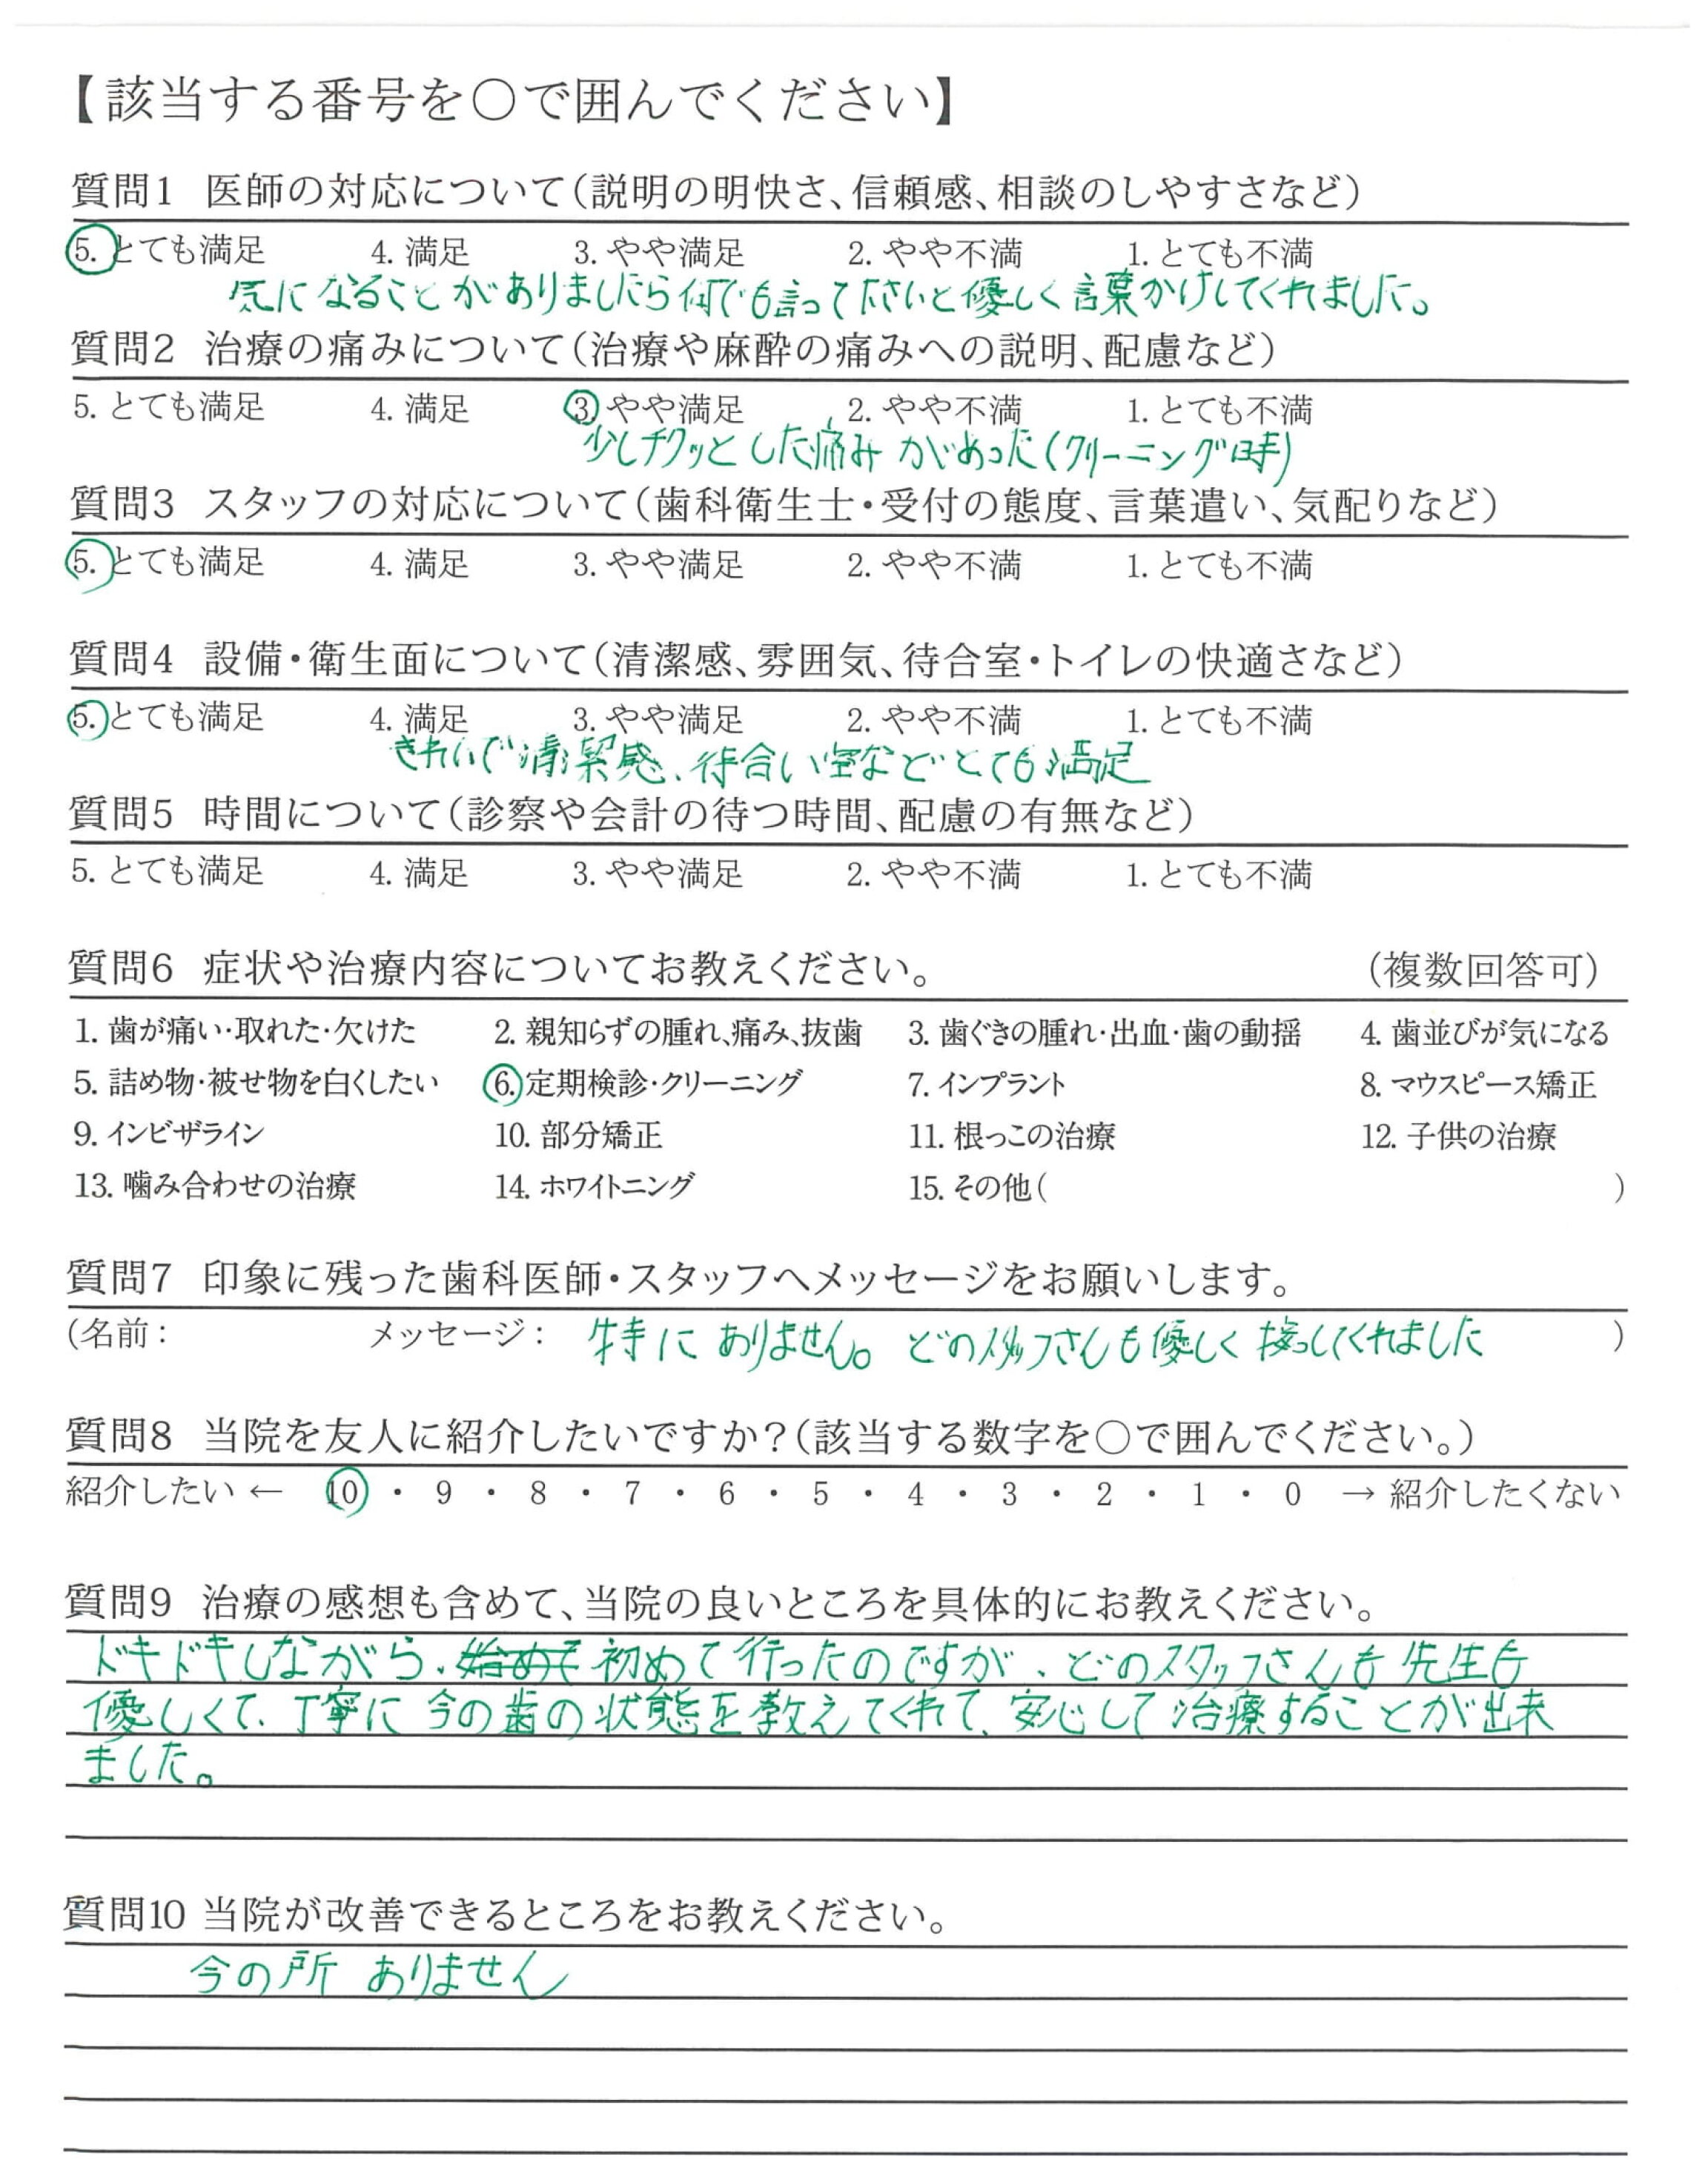 【該当する番号を○で囲んでください】
質問1 医師の対応について(説明の明快さ、信頼感、相談のしやすさなど)
5. とても満足 4. 満足 3. やや満足 2. やや不満 1. とても不満
気になることがありましたら何でも言って下さいと優しく言葉かけしてくれました。
質問2 治療の痛みについて(治療や麻酔の痛みへの説明、配慮など)
5. とても満足 4. 満足 3. やや満足 2. やや不満 1. とても不満
少しチクッとした痛みがあった(クリーニング時)
質問3 スタッフの対応について(歯科衛生士・受付の態度、言葉遣い、気配りなど)
5. とても満足 4. 満足 3. やや満足 2. やや不満 1. とても不満
質問4 設備・衛生面について(清潔感、雰囲気、待合室・トイレの快適さなど)
5. とても満足 4. 満足 3. やや満足 2. やや不満 1. とても不満
きれいで清潔感、待合い室などとても満足
質問5 時間について(診察や会計の待つ時間、配慮の有無など)
5. とても満足 4. 満足 3. やや満足 2. やや不満 1. とても不満
質問6 症状や治療内容についてお教えください。 (複数回答可)
1. 歯が痛い・取れた・欠けた 2. 親知らずの腫れ、痛み、抜歯 3. 歯ぐきの腫れ・出血・歯の動揺 4. 歯並びが気になる
5. 詰め物・被せ物を白くしたい 6. 定期検診・クリーニング 7. インプラント 8. マウスピース矯正
9. インビザライン 10. 部分矯正 11. 根っこの治療 12. 子供の治療
13. 噛み合わせの治療 14. ホワイトニング 15. その他( )
質問7 印象に残った歯科医師・スタッフへメッセージをお願いします。
(名前: メッセージ: 特にありません。どのスタッフさんも優しく接っしてくれました )
質問8 当院を友人に紹介したいですか?(該当する数字を○で囲んでください。)
紹介したい ← 10 ・ 9 ・ 8 ・ 7 ・ 6 ・ 5 ・ 4 ・ 3 ・ 2 ・ 1 ・ 0 → 紹介したくない
質問9 治療の感想も含めて、当院の良いところを具体的にお教えください。
ドキドキしながら、始めて初めて行ったのですが、どのスタッフさんも先生も
優しくて、丁寧に今の歯の状態を教えてくれて、安心して治療することが出来
ました。
質問10 当院が改善できるところをお教えください。
今の所 ありません